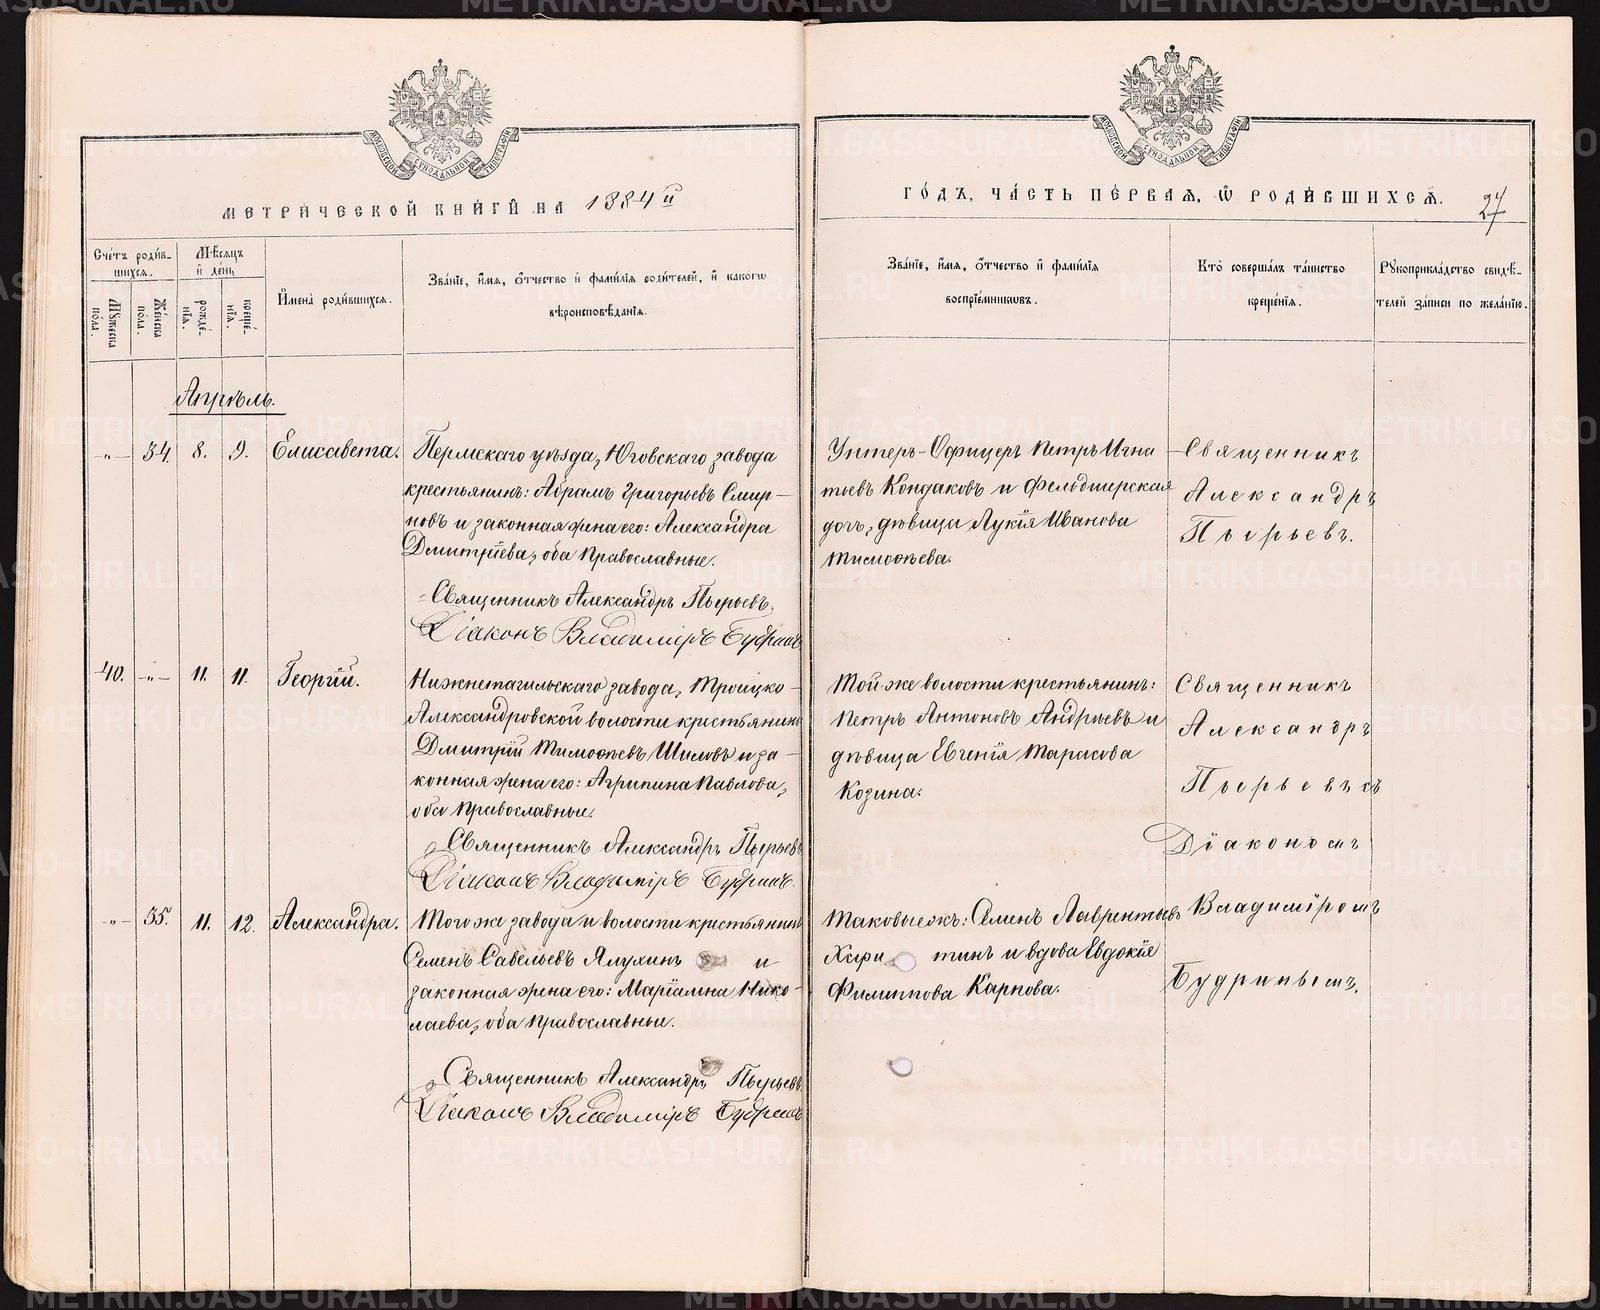 МОСКОВСКОЙ СѴНОДАЛЬНОЙ ТИПОГРАФІИ
МЕТРИЧЕСКОЙ КНИГИ НА 1884й
Счетъ родив-
шихся.
Мѣсяцъ
и день
Мужеска
пола.
Женска
пола.
рожде-
нія.
креще-
нія.
Имена родившихся.
Званіе, имя, отчество и фамилія родителей, и какогѡ
вѣроисповѣданія.
Апрѣль.
-„- 34. 8. 9. Елисавета.
Пермскаго уѣзда, Юговскаго завода
крестьянинъ: Абрамъ Григорьевъ Смир-
новъ и законная жена его: Александра
Дмитріева, оба Православные.
Священникъ Александръ Пырьевъ.
Діаконъ Владиміръ Будринъ
40. -„- 11. 11. Георгій.
Нижнетагильскаго завода, Троицко-
Александровской волости крестьянинъ
Дмитрій Тимоѳеевъ Шиловъ и за-
конная жена его: Агрипина Павлова,
оба Православные.
Священникъ Александръ Пырьевъ
Діаконъ Владиміръ Будринъ.
-„- 35. 11. 12. Александра.
Того же завода и волости крестьянинъ
Семенъ Савельевъ Ялухинъ и
законная жена его: Маріамна Нико-
лаева, оба Православные.
Священникъ Александръ Пырьевъ
Діаконъ Владиміръ Будринъ
МОСКОВСКОЙ СѴНОДАЛЬНОЙ ТИПОГРАФІИ
ГОДЪ, ЧАСТЬ ПЕРВАЯ, Ѡ РОДИВШИХСЯ.
27
Званіе, имя, отчество и фамилія
воспріемниковъ.
Кто совершалъ таинство
крещенія.
Рукоприкладство свидѣ-
телей записи по желанію.
Унтеръ-Офицеръ Петръ Игна
тьевъ Кондаковъ и Фельдшерская
дочь, дѣвица Лукія Иванова
Тимоѳеева.
Священникъ
Александръ
Пырьевъ.
Той же волости крестьянинъ:
Петръ Антоновъ Андреевъ и
дѣвица Евгенія Тарасова
Козина.
Священникъ
Александръ
Пырьевъ съ
Діакономъ
Таковые жъ: Семенъ Лаврентьевъ
тинъ и вдова Евдокія
Филиппова Карпова.
Владиміромъ
Будринымъ.
METRIKI.GASO-URAL.RU